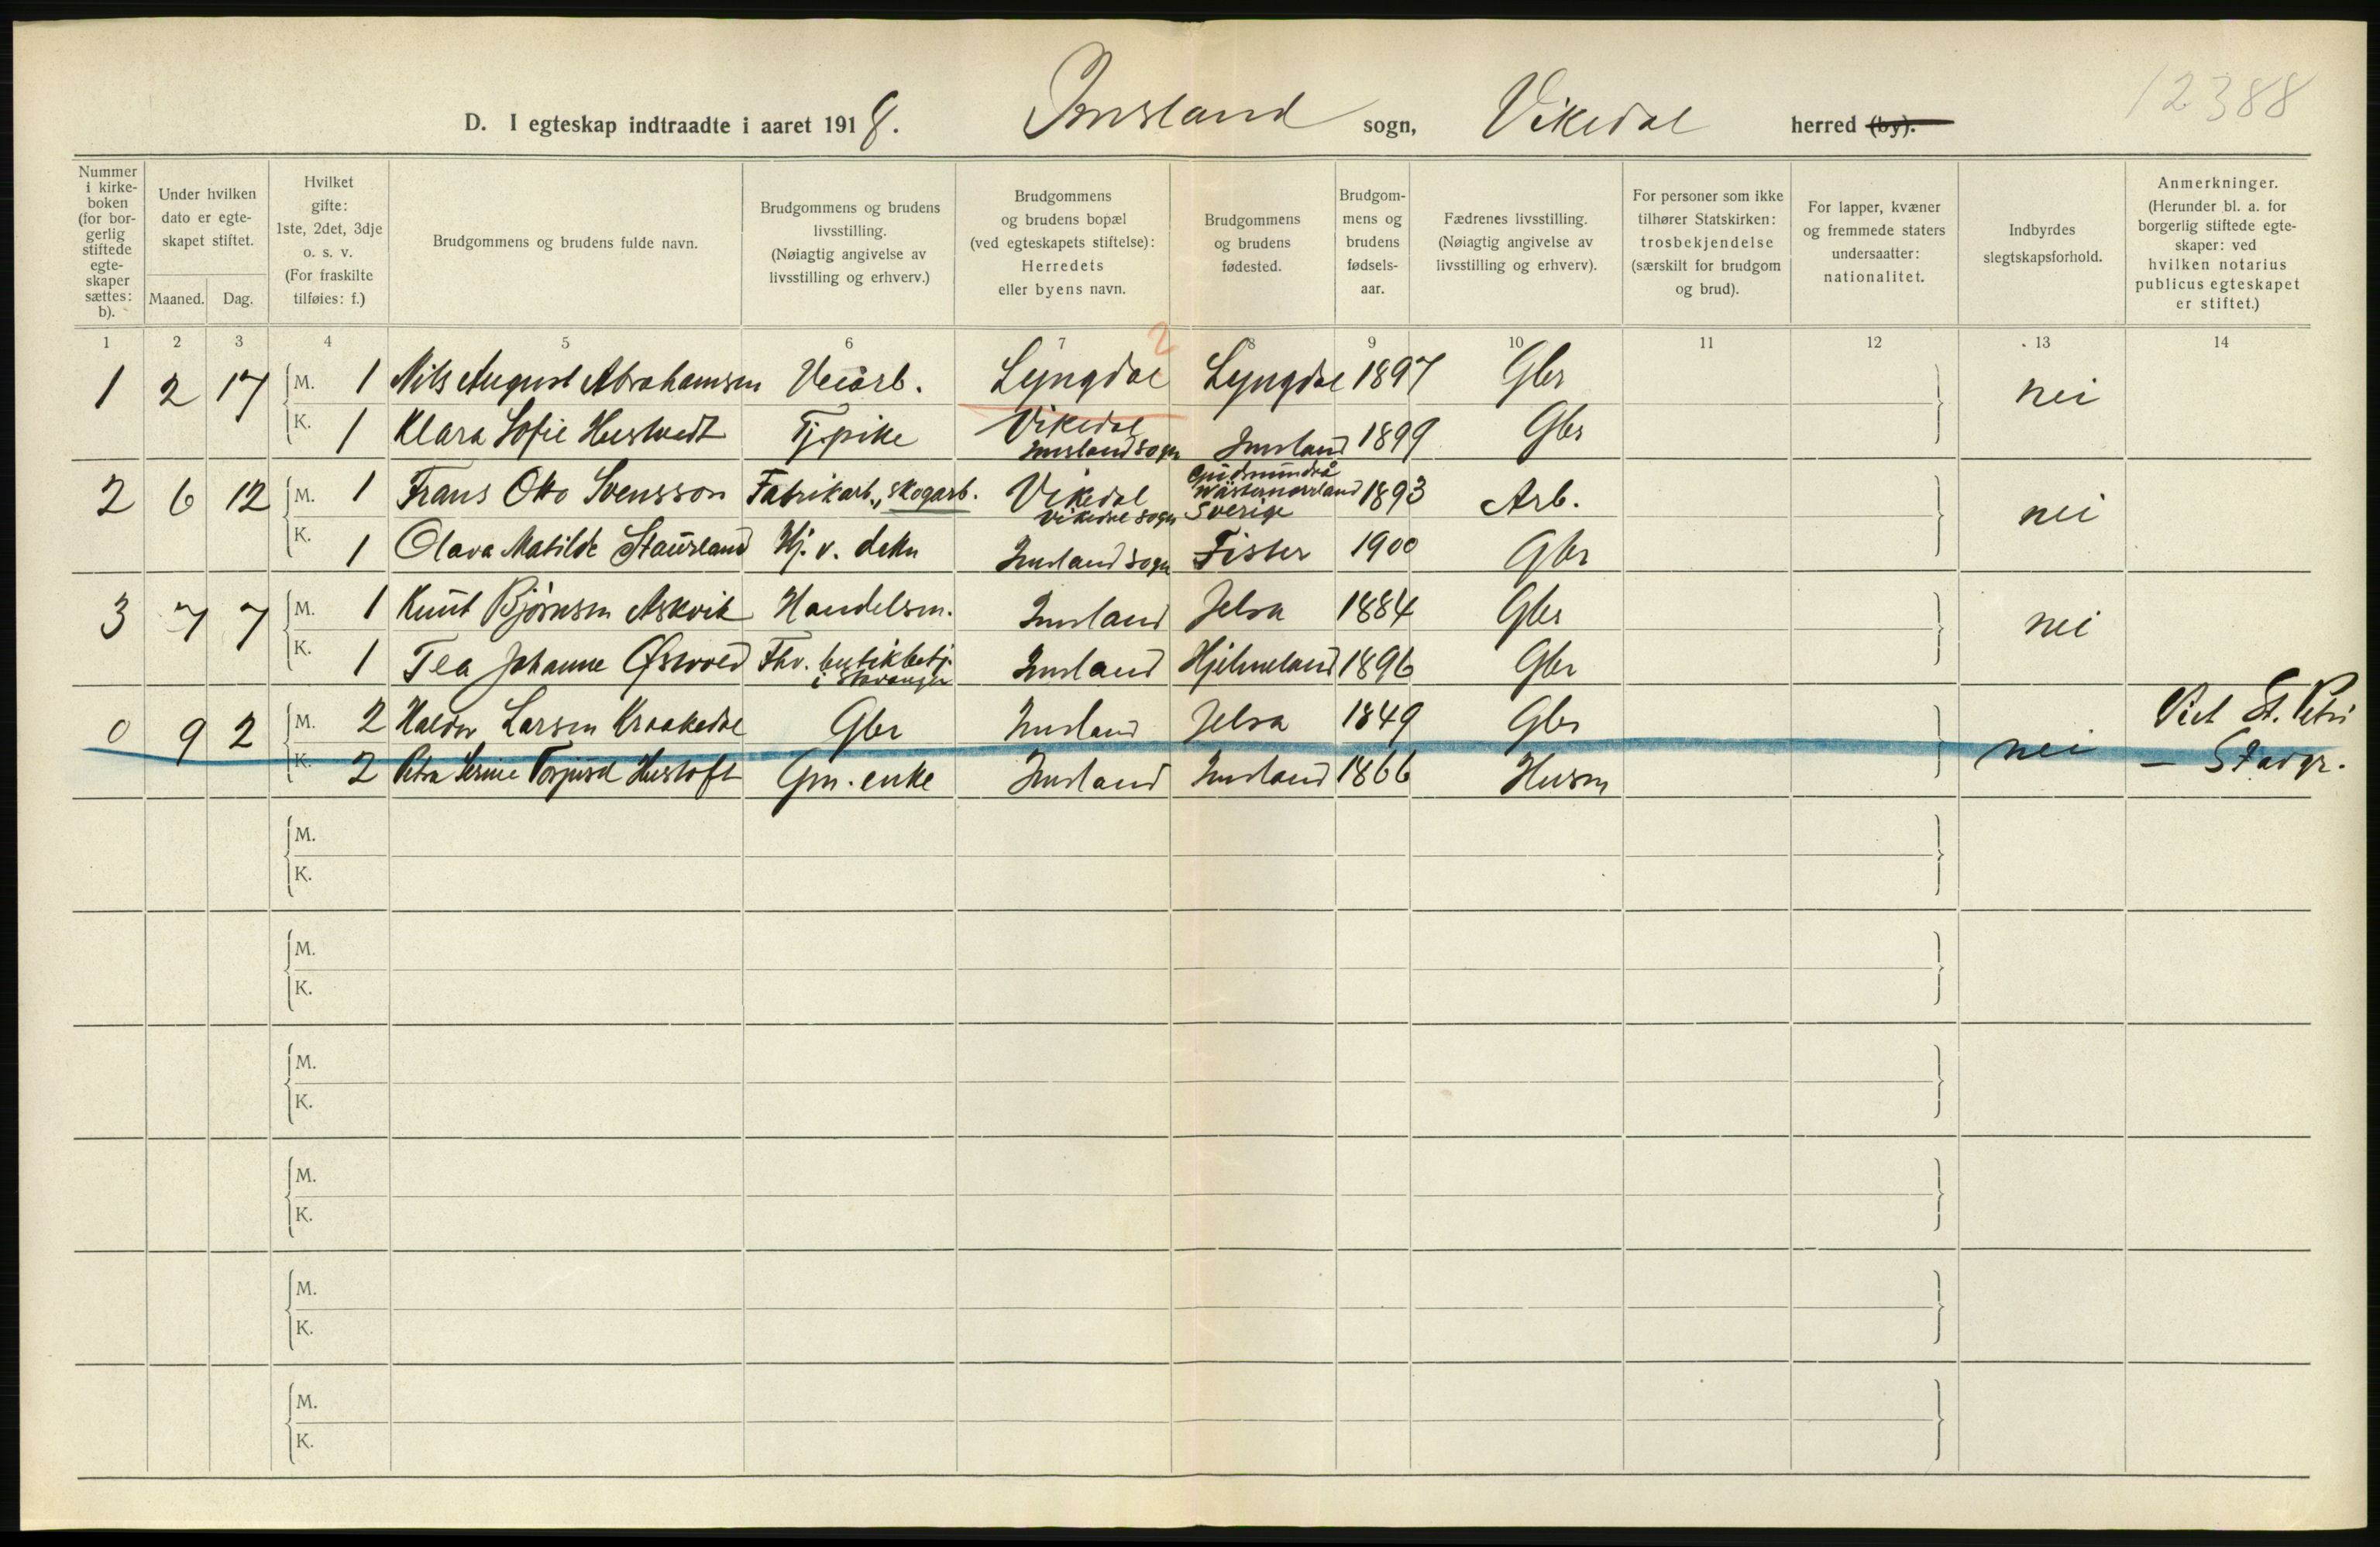 12388
D. I egteskap indtraadte i aaret 1918. Imsland sogn, Vikedal herred (by).
Nummer i kirke-boken (for bor-gerlig stiftede egte-skaper sættes: b).
Under hvilken dato er egte-skapet stiftet.
Maaned. Dag.
Hvilket gifte: 1ste, 2det, 3dje o. s. v. (For fraskilte tilføies: f.)
Brudgommens og brudens fulde navn.
Brudgommens og brudens livsstilling. (Nøiagtig angivelse av livsstilling og erhverv.)
Brudgommens og brudens bopæl (ved egteskapets stiftelse): Herredets eller byens navn.
Brudgommens og brudens fødested.
Brudgom-mens og brudens fødsels-aar.
Fædrenes livsstilling. (Nøiagtig angivelse av livsstilling og erhverv).
For personer som ikke tilhører Statskirken: trosbekjendelse (særskilt for brudgom og brud).
For lapper, kvæner og fremmede staters undersaatter: nationalitet.
Indbyrdes slegtskapsforhold.
Anmerkninger. (Herunder bl. a. for borgerlig stiftede egte-skaper: ved hvilken notarius publicus egteskapet er stiftet.)
1 2 3 4 5 6 7 8 9 10 11 12 13 14
2
1 2 17 M. 1 Nils August Abrahamsen Veiarb. Lyngdal Lyngdal 1897 Gbr nei
K. 1 Klara Sofie Hustvedt Tj.pike Vikedal Imsland sogn Imsland 1899 Gbr
2 6 12 M. 1 Frans Otto Svensson Fabrikarb., skogarb. Vikedal Vikedal sogn Gudmundrå Västernorrland Sverige 1893 Arb. nei
K. 1 Olava Matilde Staursland Hj. v. dektr Imsland sogn Fister 1900 Gbr
3 7 7 M. 1 Knut Bjørnsen Askvik Handelsm. Imsland Jelsa 1884 Gbr nei
K. 1 Tea Johanne Østvold Fhv. butikbetj. i Stavanger Imsland Hjelmeland 1896 Gbr
0 9 2 M. 2 Haldor Larsen Kraakedal Gbr Imsland Jelsa 1849 Gbr nei Viet St. Petri
K. 2 Petra Serine Torjusd Hustoft Gm. enke Imsland Imsland 1866 Husm — Stavgr.
M.
K.
M.
K.
M.
K.
M.
K.
M.
K.
M.
K.